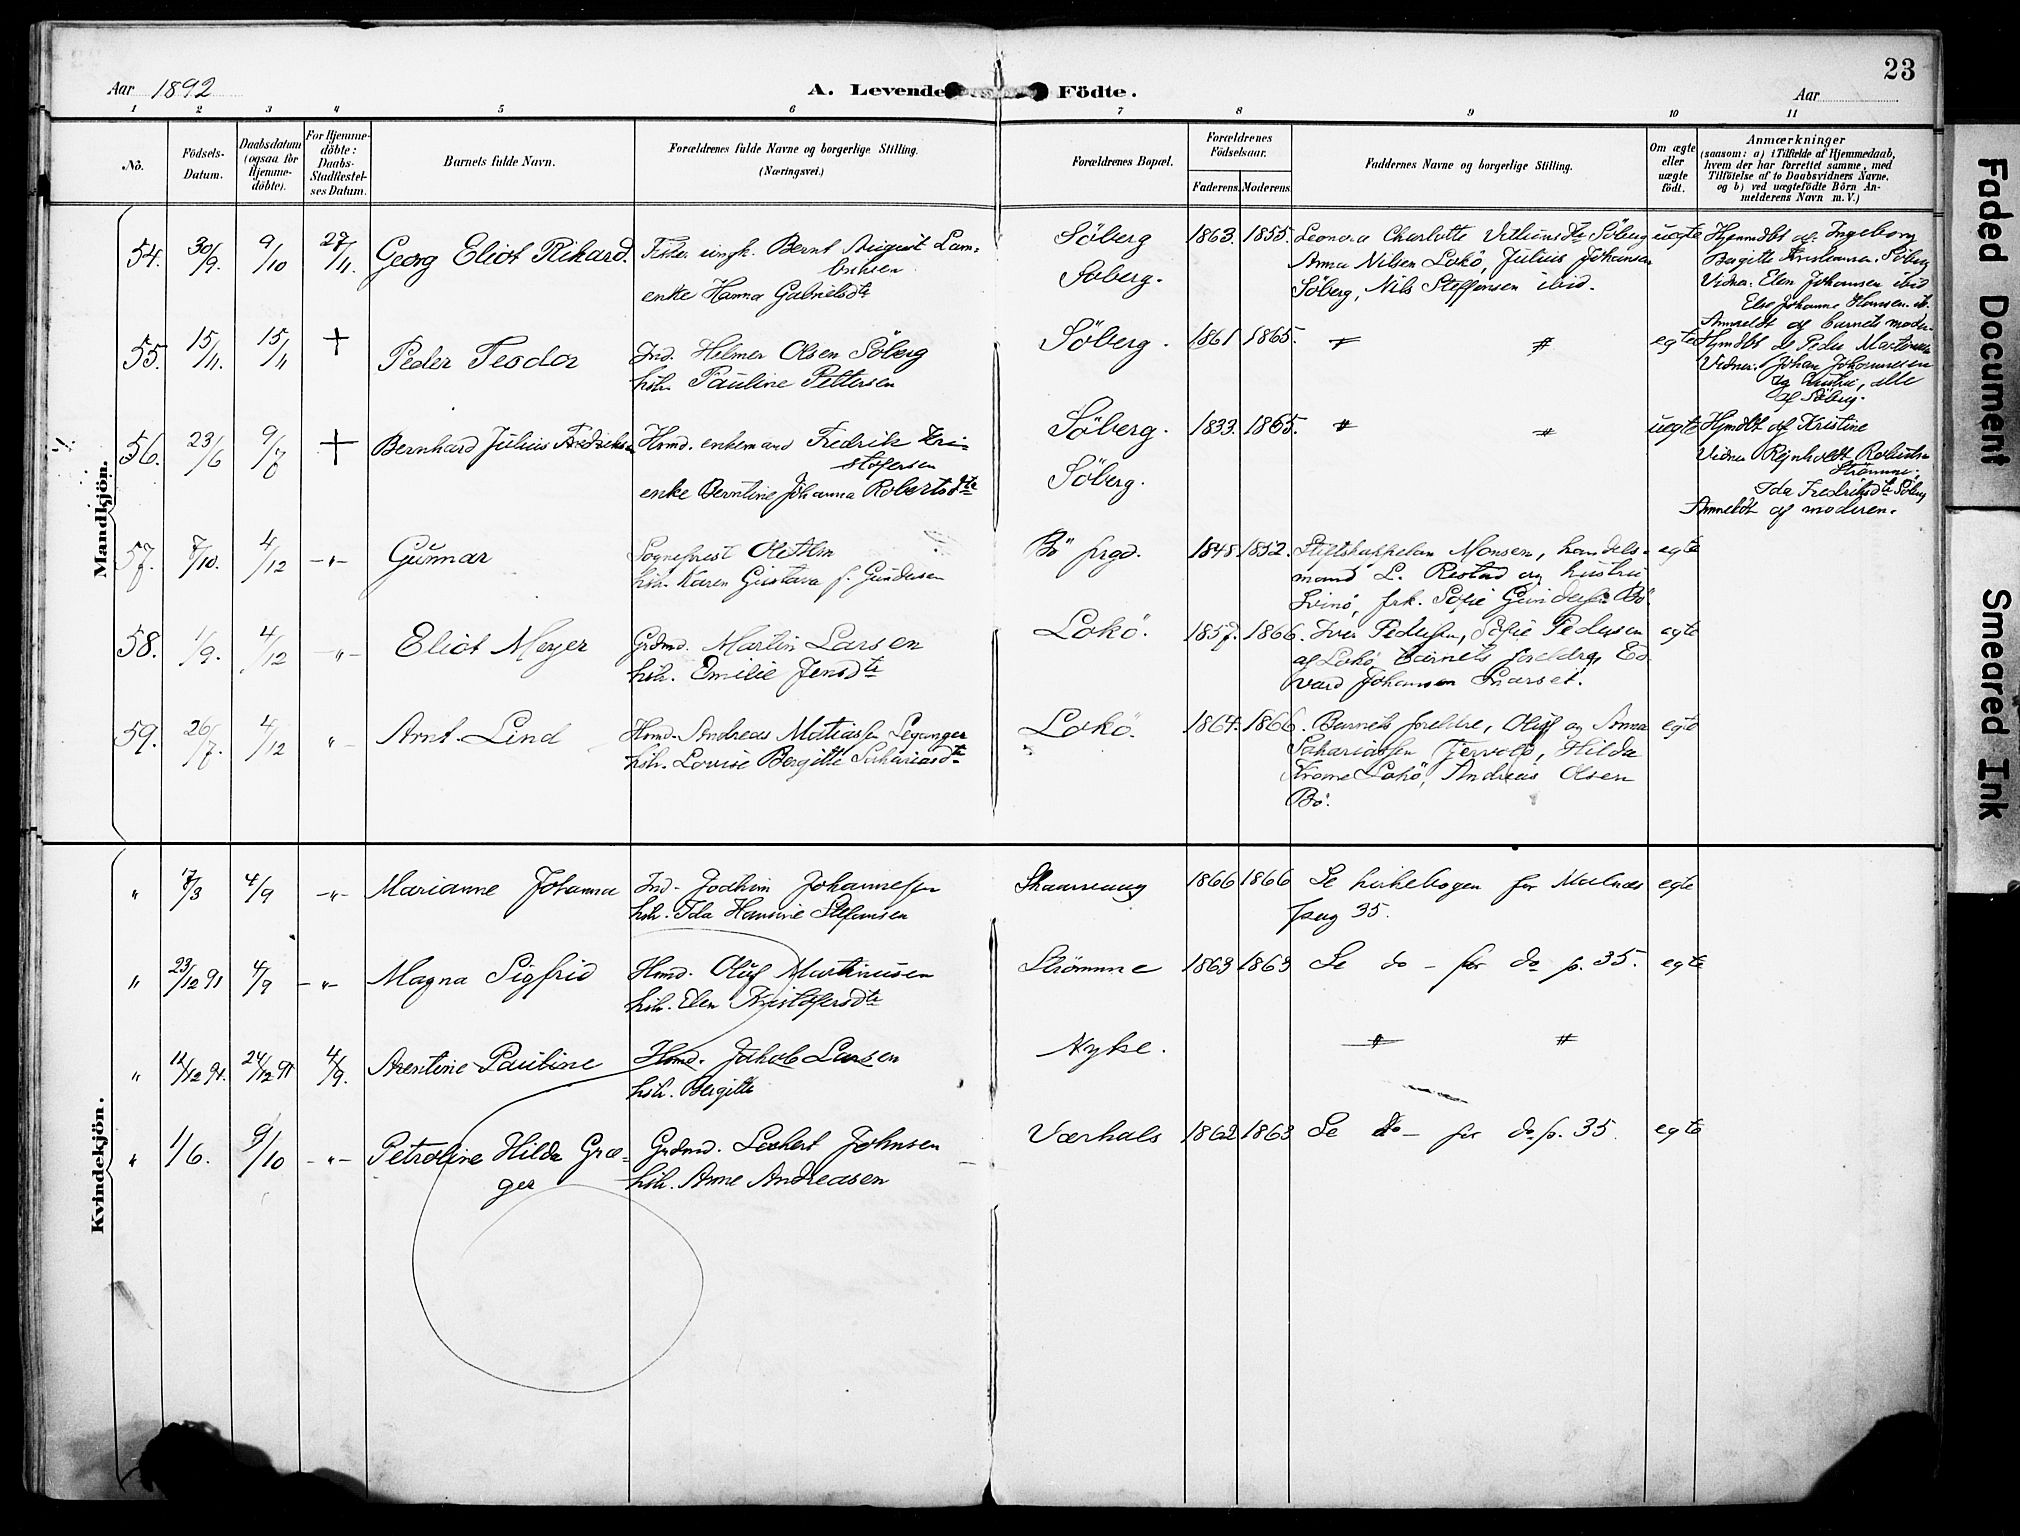 23
Aar 1892
A. Levende Födte.
Aar
1 2 3 4 5 6 7 8 9 10 11
No.
Födsels-Datum.
Daabsdatum (ogsaa for Hjemme-döbte).
For Hjemme-döbte: Daabs-Stadfæstel-ses Datum.
Barnets fulde Navn.
Forældrenes fulde Navne og borgerlige Stilling. (Næringsvei.)
Forældrenes Bopæl.
Forældrenes Födselsaar.
Faderens. Moderens.
Faddernes Navne og borgerlige Stilling.
Om ægte eller uægte födt.
Anmærkninger
(saasom: a) i Tilfælde af Hjemmedaab, hvem der har forrettet samme, med Tilföielse af to Daabsvidners Navne. og b) ved uægtefödte Börn An-melderens Navn m. V.)
Mandkjön.
54. 30/9. 9/10 27/11. Georg Eliot Rikard. Fisker ungk. Bernt August Lam-
brihsen
enke Hanna Gabrielsdtr
Söberg 1863. 1855.
Söberg.
Leonora Charlotte Söberg
Anna Nilsen Lokö, Julius Johansen
Söberg, Nils Steffensen ibid.
uegte Hjemdbt af Ingeborg
Bergitte Kristiansen Söberg
Vidner: Elen Johansen ibid
Else Johanne Hansen ib.
Anmeldt af barnets moder.
55. 15/11. 15/11 + Peder Teodor Ind. Helmer Olsen Söberg
hstr. Pauline Pettersen
Söberg. 1861 1865. # # egte
Hjmdbt af Peder
Vidner: Johan Johannessen
og hustru, alle
af Söberg.
56. 23/6 9/7 + Bernhard Julius Fredriksen Hmd. enkemand Fredrik Kri-
stofersen
enke Berntine Johanna Robertsdtr
Söberg. 1833. 1865. # # uegte
Söberg.
Hjmdbt af Kristine
Vidner Reinholdt
Strömme.
Ida Fredriksdtr Söberg
Anmeldt af moderen.
57. 7/10. 4/12 -"- Gunnar Sogneprest
hstr. Karen Gustava f. Gundersen
Bö prgd. 1848 1852. Stiftskappelan Monsen, handels-
mand L. Restad og hustru
Svinö, frk. Sofie Gundersen Bö.
egte
58. 1/9. 4/12 -"- Eliot Meyer Grdmd. Martin Larsen
hstr. Emilie Jensdtr
Lokö. 1857. 1866. Iver Pedersen, Sofie Pedersen
af Lokö, barnets foreldre, Ed-
vard Johansen
egte
59. 26/7. 4/12 " Arnt Lind Hmd. Andreas Matiassen Leganger
hstr. Lovise Bergitte Sakariasdtr
Lokö. 1864. 1866. Barnets foreldre, Oluf og Anna
Sakariassen Fjervold, Hilda
Krane Lokö, Andreas Olsen
Bö.
egte
Kvindekjön.
" 17/3 4/9 -"- Marianne Johanna Ind. Joakim Johannesen
hstr. Ida Hansine Stefansen
1866 1866 Se kirkebogen for Malnes
pag 35.
egte
" 23/12 91 4/9 -"- Magna Sigfrid Hmd. Oluf Martinusen
hstr. Elen Kristofersdtr
Strömme 1863 1863 Se do - for do p. 35. egte
" 12/12 91. 24/12 91 4/9. Arentine Pauline Hmd. Jakob Larsen
hstr. Bergitte
Nyke. # #
" 1/6. 9/10 -"- Petroline Hilda Græ-
ger
Grdmd. Leohert Johnsen
hstr. Anne Andreasen
Værhals 1862 1863 Se do - for do p. 35. egte
Faded Document
Smeared Ink